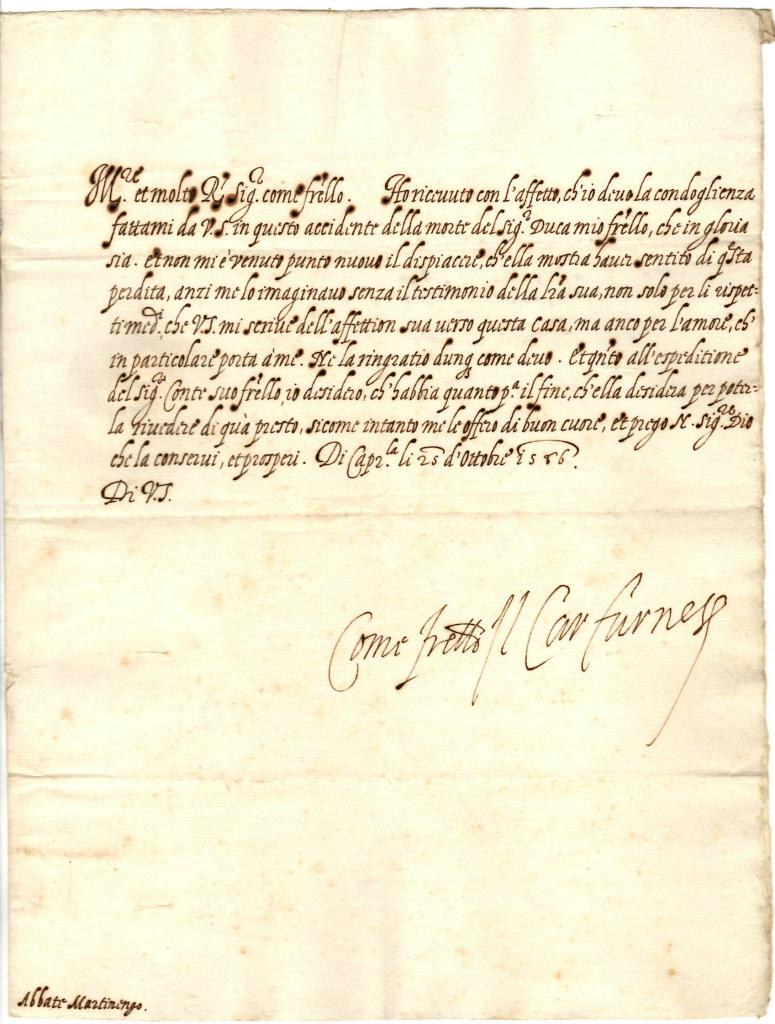 M.re et molto R.do Sig.r come fr̃ello. Ho ricevuto con l'affetto, ch'io devo la condoglienza
fattami da V.S. in questo accidente della morte del Sig.r Duca mio fr̃ello, che in gloria
sia. et non mi è venuto punto nuovo il dispiacere, ch'ella mostra haver sentito di q̃sta
perdita, anzi me lo imaginavo senza il testimonio della lr̃a sua, non solo per li rispet-
ti med.i che V.S. mi scrive dell'affettion sua verso questa Casa, ma anco per l'amore, ch'
in particolare porta à me. Ne la ringratio dunq; come devo. et q̃nto all'espeditione
del Sig.r Conte suo fr̃ello, io desidero, ch'habbia quanto p.a il fine, ch'ella desidera per poter-
la rivedere di quà presto, sicome intanto me le offero di buon cuore, et prego N. Sig.re Dio
che la conservi, et prosperi. Di Capr.la li 25 d'Ottobre 1586.
Di V.S.
Come fr̃ello Il Car Farnese
Abbate Martinengo.